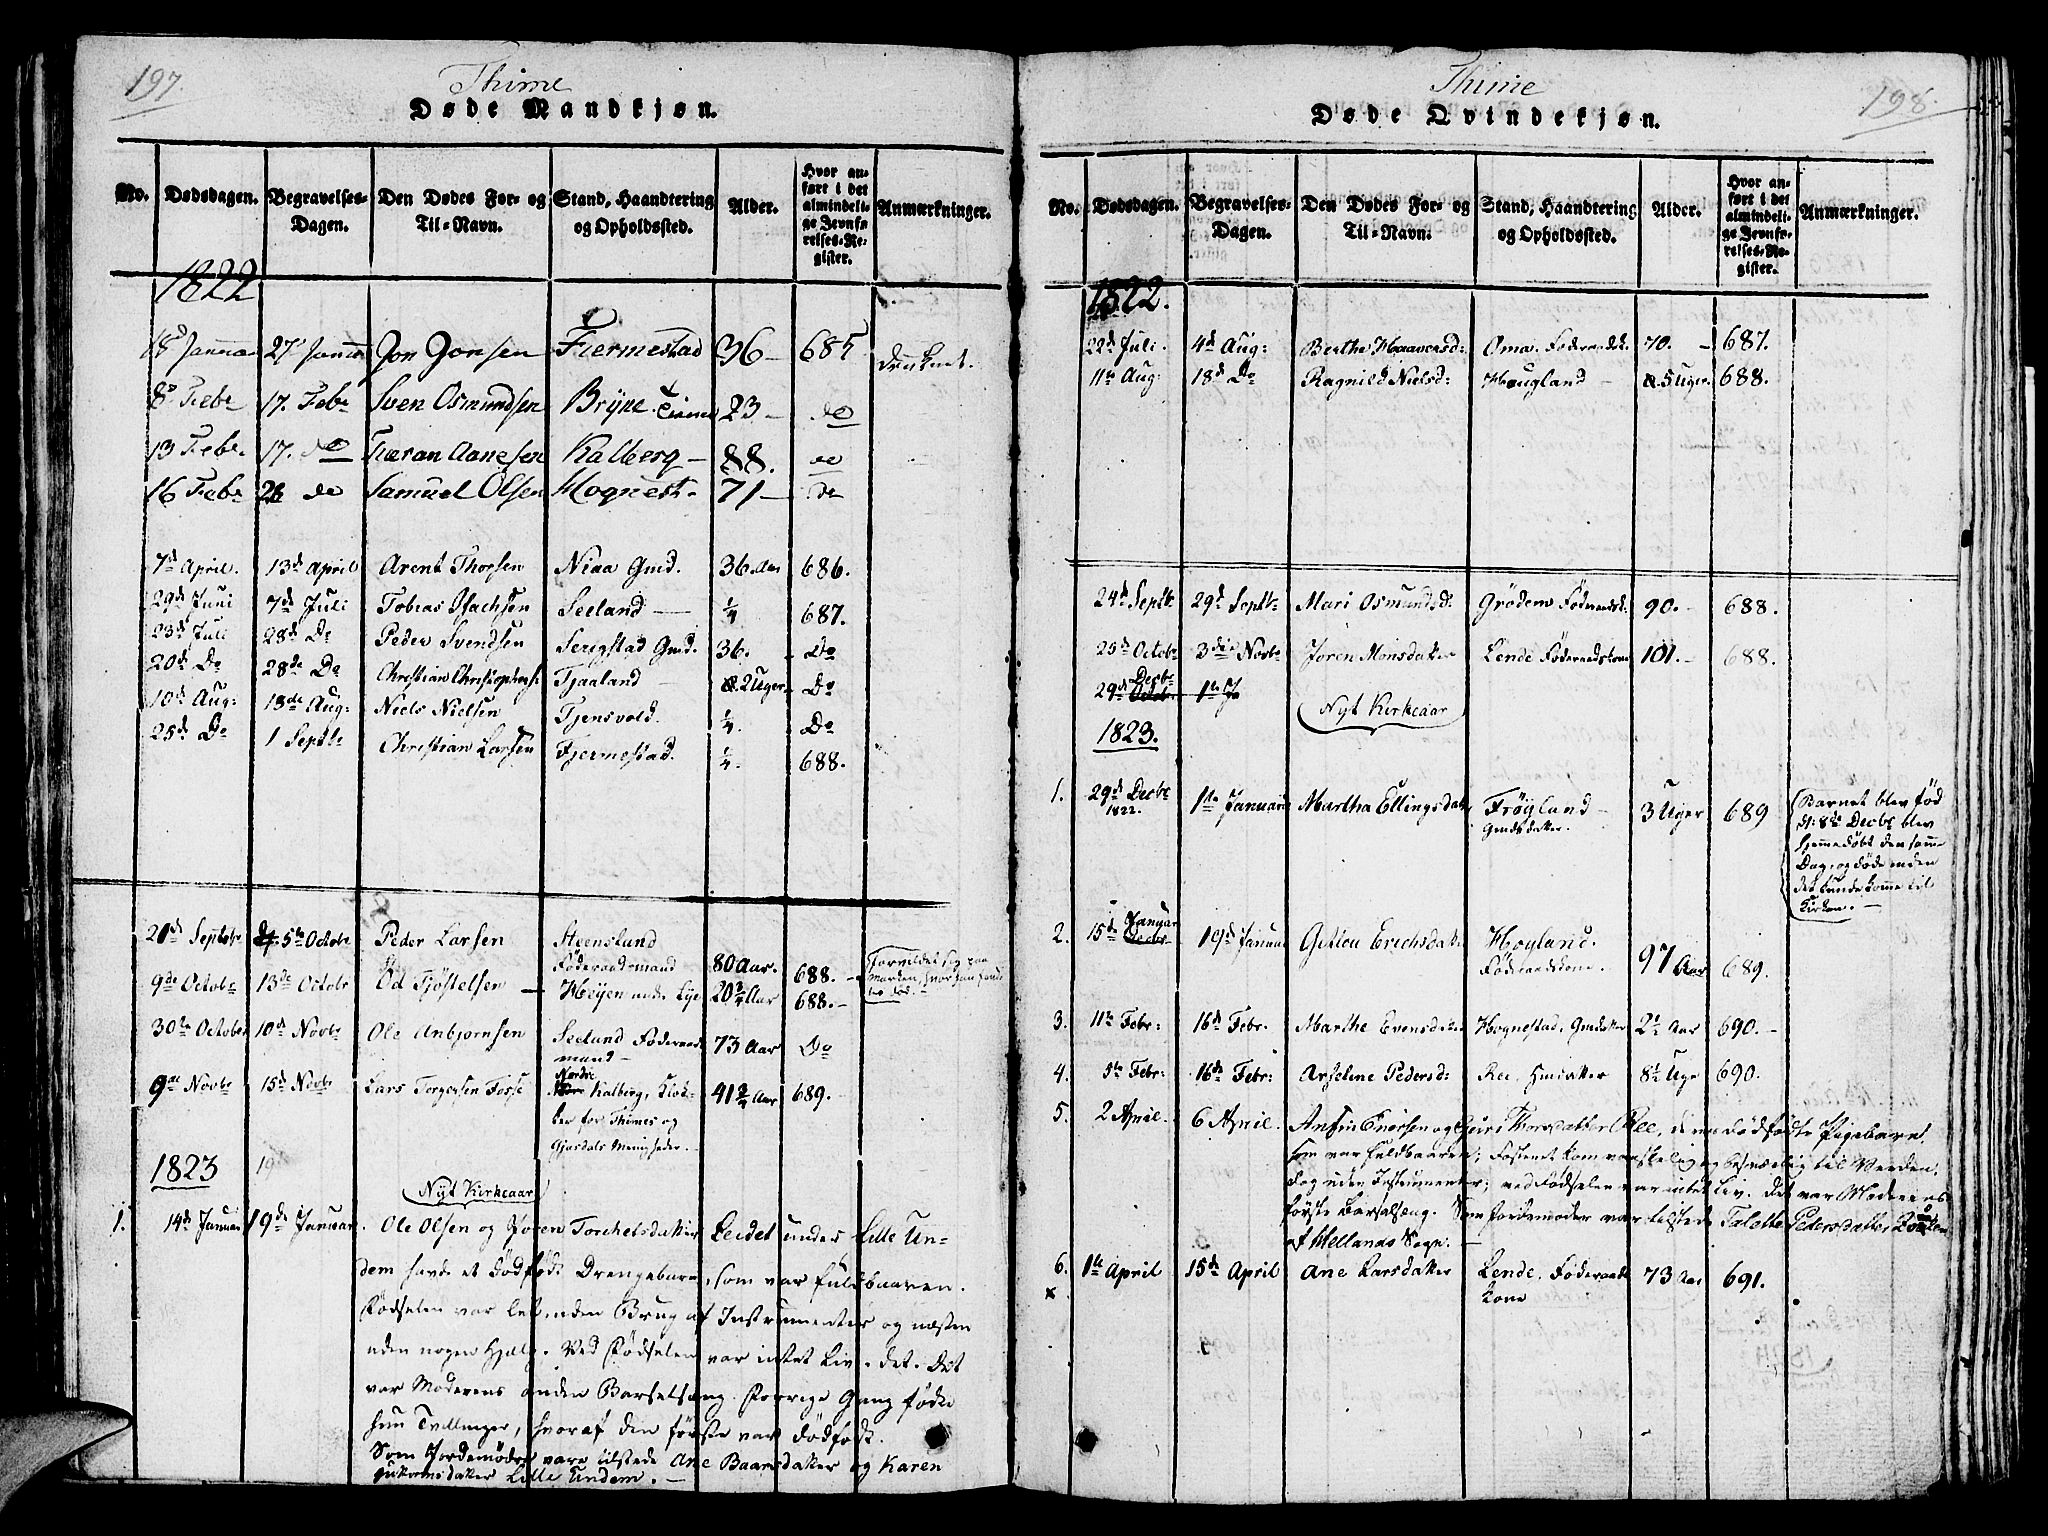 197.
Thime
Døde Mandkjøn.
No. Dødsdagen. Begravelses-Dagen. Den Dødes For- og Til-Navn. Stand, Haandtering og Opholdssted. Alder. Hvor anført i det almindelige Jevnførelses-Register. Anmærkninger.
1822
18d Januar 27 Januar Jon Jonsen Fiermestad 36 — 685 druknet.
8d Febr 17. Febr Sven Osmundsen Bryne 23 — do
13 Febr. 17. do Taran Aanesen Kalberg — 88. do
16 Febr 28 do Samuel Olsen Hognest. 71 — do
7d April. 13d April Arent Thorsen Niaa Gmd. 36. Aar 686.
29d Juni 7d Juli Tobias Isachsen Seeland — ¼ 687.
23d Juli 28d Do Peder Svendsen Serigstad Gmd. 36. Do
20d Do 28de Do Christian Christophers. Tjaaland — 2 Uger Do
10d Aug: 18de Aug: Niels Nielsen Tjensvold. ¼. Do
25d Do 1 Septbr Christian Larsen Fjermestad. ¼. 688.
21d Septbr 5te Octobr Peder Larsen Steenslund Føderaadsmand 80 Aar. 688. —
9de Octobr 13de Octobr Od Tjøstelsen — Høyen under Lye 20¾ Aar 688. — Forvildet sig paa Marken, hvor han fandtes død.
30te October 10d Novbr Ole Anbjørnsen Seeland Føderaadsmand — 73 Aar Do
9de Novbr 15d Novbr Lars Torgersen Fosse Nordre Kalberg, Klokker for Thimes og Gjesdals Menigheder. 41¾ Aar 689.
1823
Nyt Kirkeaar
1. 14d Januar 19de Januar. Ole Olsen og Joren Torchelsdatter Leidet under Lille Un-
dem havde et dødfødt Drengebarn, som var fuldbaaren.
Fødselen var let, uden Brug af Instrumenter og næsten
uden nogen Hjælp. Ved Fødselen var intet Liv. det. Det
var Moderens anden Barselseng. Forrige Gang fødte
hun Tvillinger, hvoraf den første var dødfødt.
Som Jordemødre vare tilstede Ane Baarsdatter og Karen
Lille Undem. —
198.
Thime
Døde Qvindekjøn.
No. Dødsdagen. Begravelses-Dagen. Den Dødes For- og Til-Navn. Stand, Haandtering og Opholdssted. Alder. Hvor anført i det almindelige Jevnførelses-Register. Anmærkninger.
1822.
22d Juli. 4d Aug: Berthe Haaversd: Oma. Føderaadsk. 70. — 687.
11te Aug: 18d Do Ragnild Nielsd: Haugland — 5 Uger. 688.
24d Septbr 29d Septbr Mari Osmundsd: Grødem Føderaadsk: 90. — 688.
25d Octobr 3die Novbr Joren Monsdatter Lende Føderaadskone 101. — 688.
29d Decbr Octobr 1te Ja
Nyt Kirkeaar
1823.
1. 29d Decbr 1822. 1te Januar Martha Ellingsdatter Frøyland — Gmdsdatter. 3 Uger 689 Barnet blev fød d: 8de Decbr blev hjemmedøbt den samme Dag, og døde inden det kunde komme til Kirken. —
2. 15d Januar Decbr 19d Januar Gitlou Erichsdatter Høyland. Føderaadskone. 97 Aar 689.
3. 11te Febr: 16d Febr. Marthe Evensdatter Hognestad, Gmdatter 2½ Aar 690. —
4. 5te Febr: 16de Febr: Arseline Pedersd: Ree. Hmdatter 8½ Uge 690.
5. 2 April. 6 April. Anfin Enersen og Guri Thorsdatter Ree, dennes dødfødte Pigebarn,
som var fuldbaaren; Fosteret kom vanskelig og besværlig til Verden,
dog uden Instrumenter; ved Fødselen var intet Liv. det var Moderens
første Barselseng. Som Jordemoder var tilstede Talette Pedersdatter
af Hellands Sogn. —
6. x 1te April 15d April Ane Larsdatter Lende, Føderaads kone 73 Aar 691.